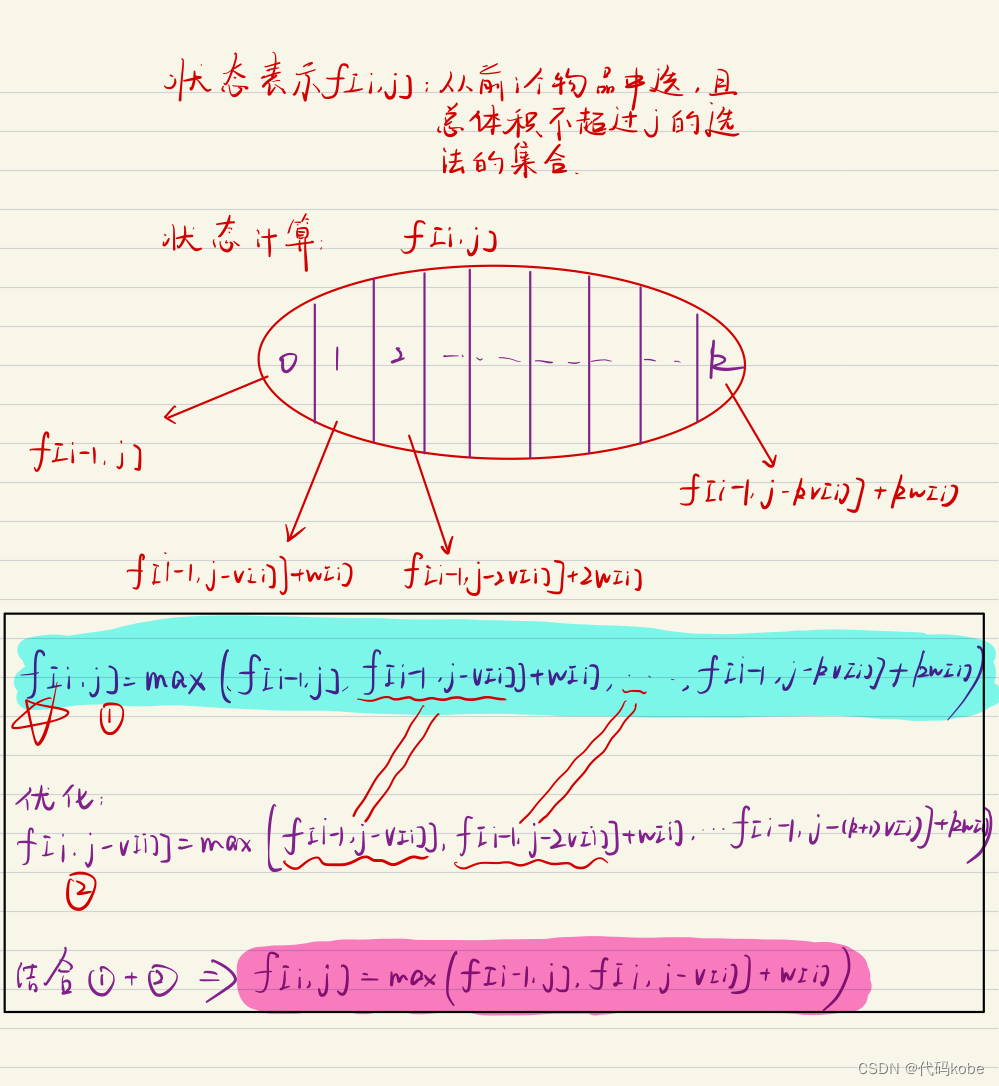 状态表示f[i,j]:从前i个物品中选,且
总体积不超过j的选
法的集合.
状态计算: f[i,j]
0 1 2 ... k
f[i-1,j]
f[i-1,j-kv[i]]+kw[i]
f[i-1,j-v[i]]+w[i] f[i-1,j-2v[i]]+2w[i]
f[i,j]=max(f[i-1,j],f[i-1,j-v[i]]+w[i],...,f[i-1,j-kv[i]]+kw[i])
①
优化:
f[i,j-v[i]]=max(f[i-1,j-v[i]],f[i-1,j-2v[i]]+w[i],...f[i-1,j-(k+1)v[i]]+kw[i])
②
结合①+②⇒f[i,j]=max(f[i-1,j],f[i,j-v[i]]+w[i])
CSDN @代码kobe